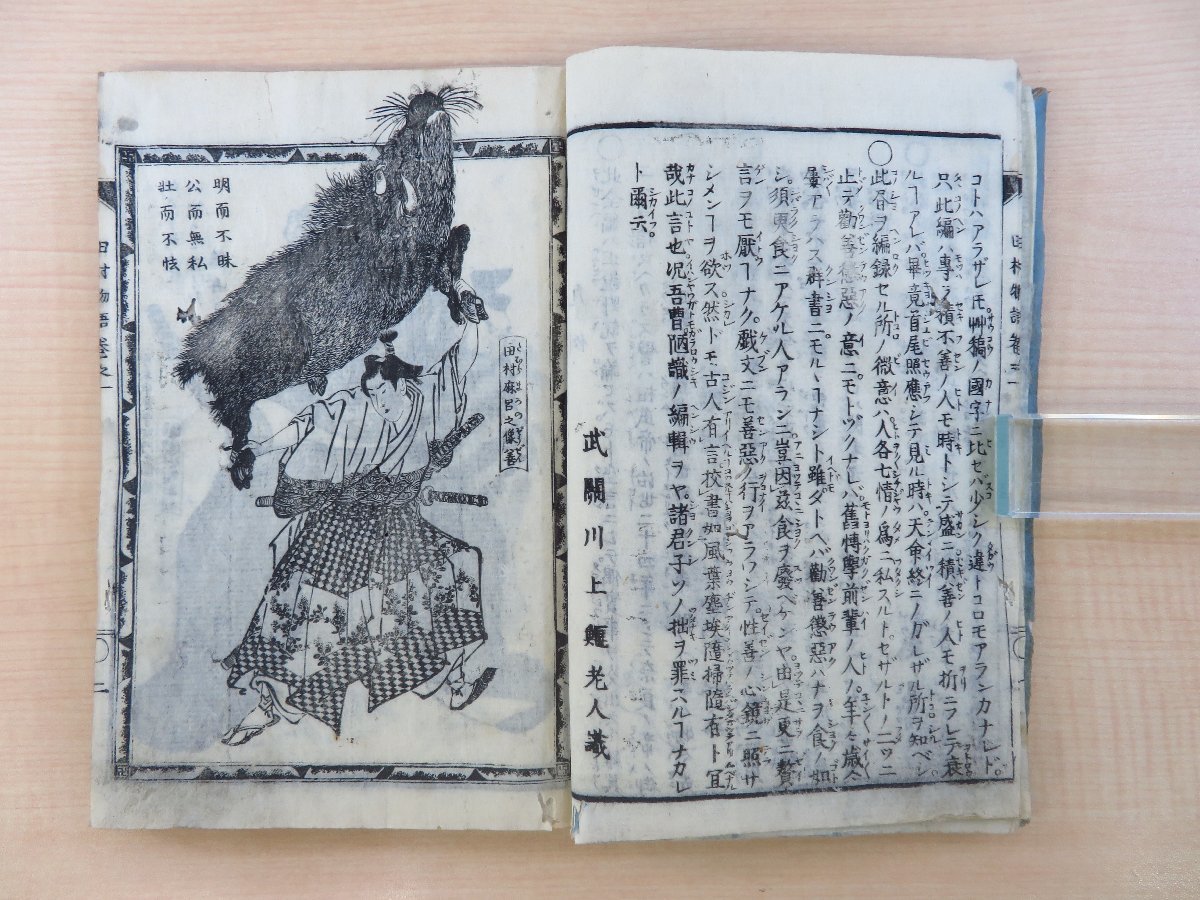 コトハアラザレ𪜈艸稿ノ國字ニ比セバ少シク違トコロモアランカナレド。
只此編ハ專ラ積不善ノ人モ時トシテ盛ニ積善ノ人モ折ニフレテ衰
ルヿアレバ畢竟首尾照應シテ見ル時ハ天命終ニノガレザル所ヲ知ベシ
〇此書ヲ編録セル所ノ微意ハ人各七情ノ爲ニ私スルトセザルトノ二ツニ
止テ勸善懲惡ノ意ニモトヅクナレバ舊傳學前輩ノ人ノ年々歳々
アラハス群書ニモルヽヿナシト雖ダトヘバ勸善懲惡ハナヲ食ノ如
シ須臾食ニアケル人アランニ豈因玆食ヲ廢ベケンヤ由是更ニ贅
言ヲモ厭ヿナク。戲文ニモ善惡ノ行ヲアラワシテ。性善ノ心鏡ニ照サ
シメンヿヲ欲ス然ドモ古人有言校書如風葉塵埃隨掃隨有ト宜
哉此言也况吾曹陋識ノ編輯ヲヤ。諸君子ソノ拙ヲ罪スルヿナカレ
ト爾云。
武關川上老人識
田村物語卷之一
明而不昧
公而無私
壯而不怯
田村麻呂之像
田村物語卷之一
〇二